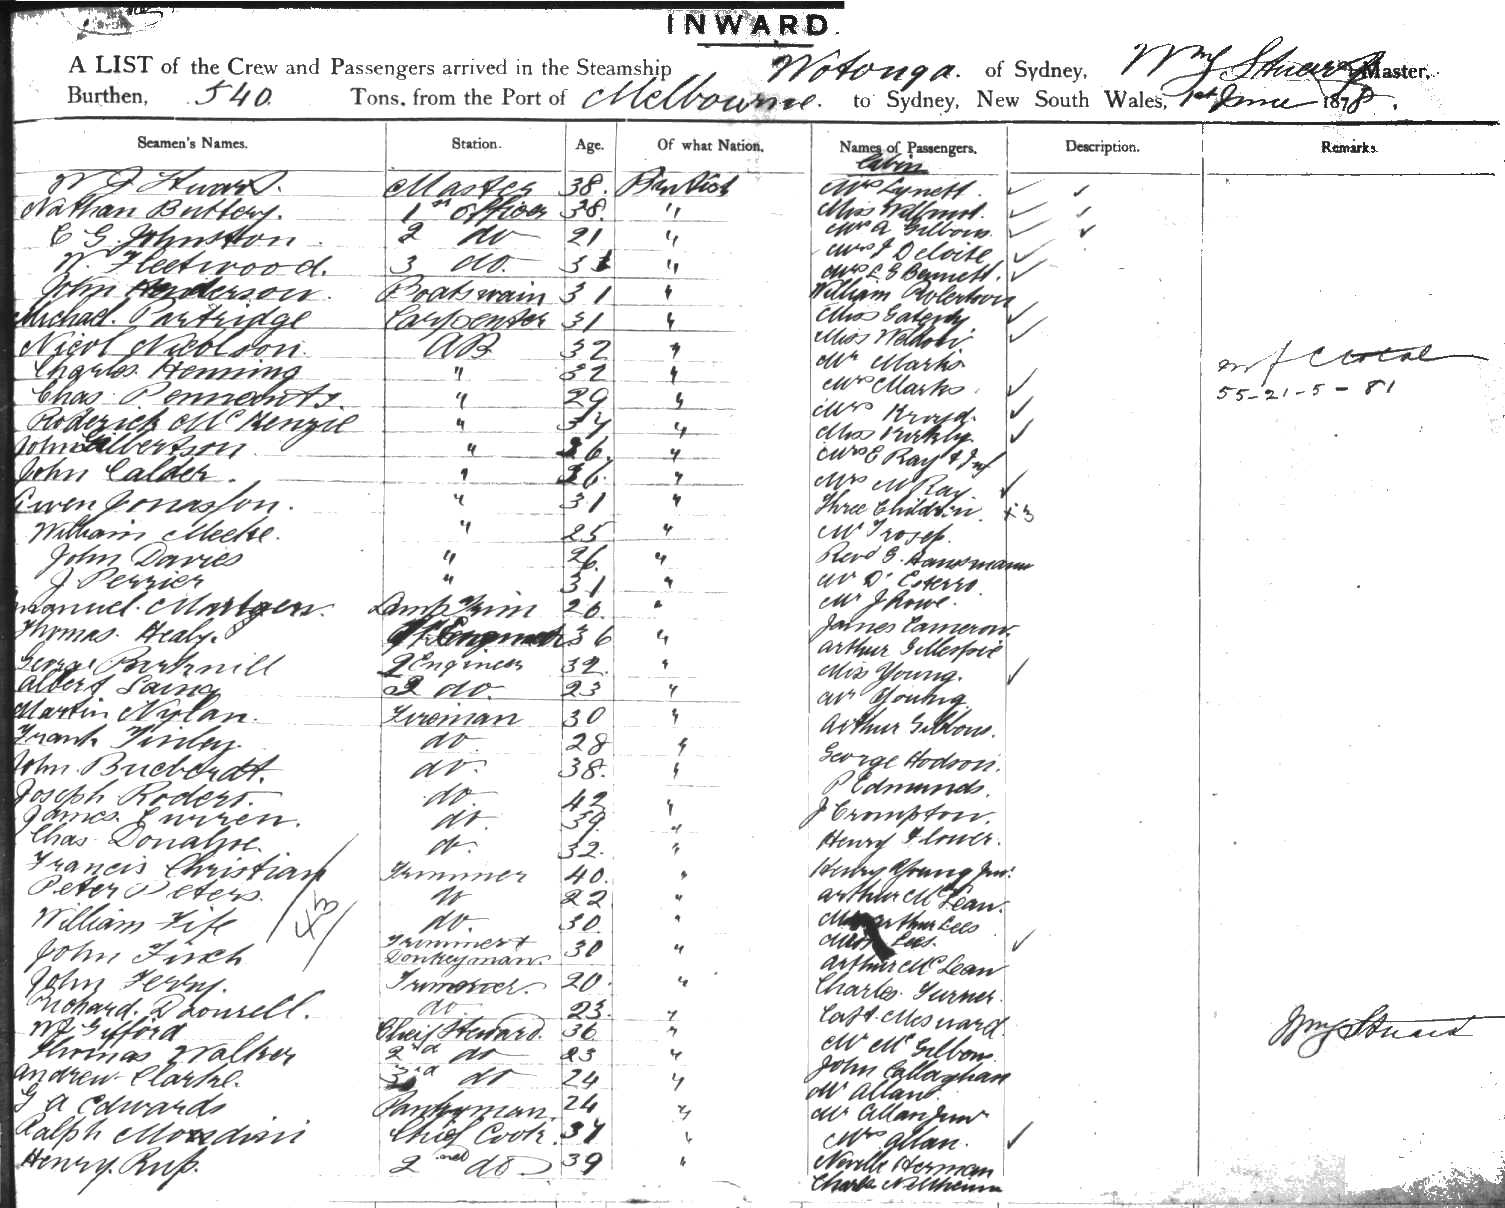 INWARD.
A LIST of the Crew and Passengers arrived in the Steamship Wotonga. of Sydney, Wm Stuart Master,
Burthen, 540. Tons, from the Port of Melbourne. to Sydney, New South Wales, 1st June 1878.
Seamen's Names. Station. Age. Of what Nation. Names of Passengers. Description. Remarks.
Cabin
Stuart. Master 38. British Mrs Lynett.
Nathan Buttery. 1st officer 38. " Miss
C G. Johnston 2 do 21 " Mrs A Gibbons.
W. Fleetwood. 3 do. 33 " Mrs J Deloite
Mrs L E Bennett.
John Henderson. Boatswain 31 " William Robertson
Michael. Partridge Carpenter 31 " Miss
Nicol Nicolson. AB 32 " Miss
Mr Marks
Charles. Henning " 32 " Mrs Marks.
55-21-5-81
Chas. Pennants. " 29 " Mrs
Roderick McKenzie " 34 " Miss
John Gilbertson " 26. " Mrs E Ray & Inf
John Calder. " 26. " Mrs M Ray.
Owen Jonasson. " 31 " Three Children. x3
William Meeke. " 25 " Mr
John Davies " 26. " Revd G. Hausmann
J Perrier " 31 " Mr D'
Emanuel. Lamp Trim 26. " Mr J Rowe.
Thomas. Healy. 1st Engineer 36 " James Cameron.
Arthur Gillespie
George 2 Engineer 32. " Miss Young.
Albert Laing 3 do. 23 " Mr Young
Martin Nylan. Fireman 30 " Arthur Gibbons.
Frank Finley. do. 28 "
John. do. 38. " George Hodson.
Joseph Rodero. do. 42 " P Edmunds.
James. Curren. do. 39. " J Crompton.
Chas. Donahoe. do. 32. " Henry Flower.
Francis Christian Trimmer 40. " Henry Young Junr.
Peter Peters. do 22 " Arthur McLean.
William Fife do. 30. " Arthur Lees
x3
John Finch Trimmer & Donkeyman. 30 " Lees.
Arthur McLean
John Ferry. Trimmer. 20. " Charles. Turner.
Richard. do. 23. " Capt. Mesnard.
Wm Stuart
W Gifford Cheif Steward. 36 " Mr Mc Gibbons.
Thomas Walker 2nd do 23 " John Callaghan
Andrew Clarke. 3rd do 24 " Mr Allan.
G A Edwards Pantryman. 24 " Mr Allan Junr
Ralph Chief Cook. 37 " Mrs Allan.
Henry. 2nd do 39 " Neville Herman
Charles